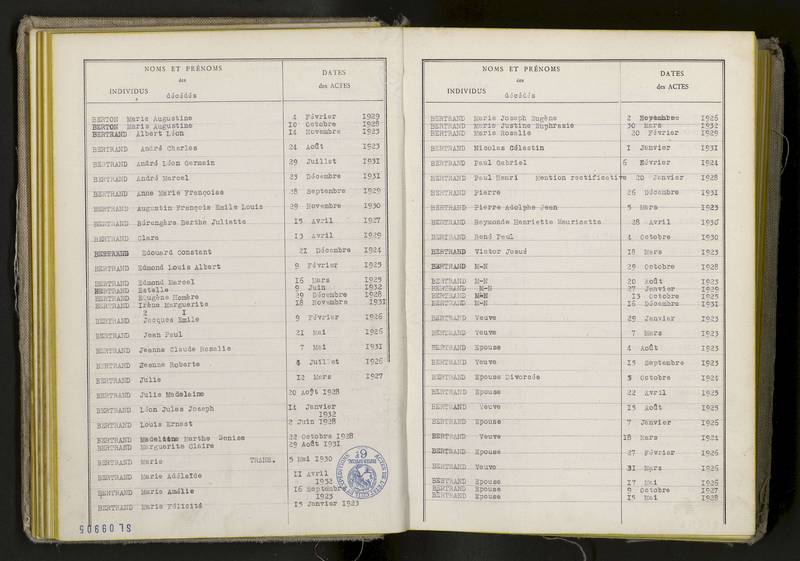 NOMS ET PRÉNOMS
des
INDIVIDUS décédés
DATES
des ACTES
BERTON Marie Augustine 4 Février 1929
BERTON Marie Augustine 10 Octobre 1928
BERTRAND Albert Léon 14 Novembre 1923
BERTRAND André Charles 24 Août 1923
BERTRAND André Léon Germain 29 Juillet 1931
BERTRAND André Marcel 23 Décembre 1931
BERTRAND Anne Marie Françoise 28 Septembre 1929
BERTRAND Augustin François Emile Louis 29 Novembre 1930
BERTRAND Bérengère Berthe Juliette 15 Avril 1927
BERTRAND Clara 13 Avril 1929
BERTRAND Edouard Constant 21 Décembre 1924
BERTRAND Edmond Louis Albert 9 Février 1925
BERTRAND Edmond Marcel 16 Mars 1925
BERTRAND Estelle 9 Juin 1932
BERTRAND Eugène Homère 29 Décembre 1928
BERTRAND Irène Marguerite 18 Novembre 1931
2 I
BERTRAND Jacques Emile 9 Février 1926
BERTRAND Jean Paul 21 Mai 1926
BERTRAND Jeanne Claude Rosalie 7 Mai 1931
BERTRAND Jeanne Roberte 4 Juillet 1926
BERTRAND Julie 12 Mars 1927
BERTRAND Julie Madeleine 20 Août 1928
BERTRAND Léon Jules Joseph 14 Janvier
1932
BERTRAND Louis Ernest 2 Juin 1928
BERTRAND Madeleine Marthe Denise 22 Octobre 1928
BERTRAND Marguerite Claire 29 Août 1931
BERTRAND Marie TRANS. 5 Mai 1930
BERTRAND Marie Adélaïde 11 Avril
1932
BERTRAND Marie Amélie 16 Septembre
1923
BERTRAND Marie Félicité 15 Janvier 1923
SL 09905
NOMS ET PRÉNOMS
des
INDIVIDUS décédés
DATES
des ACTES
BERTRAND Marie Joseph Eugène 2 Novembre 1926
BERTRAND Marie Justine Euphrasie 30 Mars 1932
BERTRAND Marie Rosalie 20 Février 1929
BERTRAND Nicolas Célestin 1 Janvier 1931
BERTRAND Paul Gabriel 6 Février 1924
BERTRAND Paul Henri Mention rectificative 20 Janvier 1928
BERTRAND Pierre 26 Décembre 1931
BERTRAND Pierre Adolphe Jean 5 Mars 1923
BERTRAND Raymonde Henriette Mauricette 28 Avril 1930
BERTRAND René Paul 4 Octobre 1930
BERTRAND Victor Josué 18 Mars 1923
BERTRAND M-N 29 Octobre 1928
BERTRAND M-N 20 Août 1923
BERTRAND M-N 27 Janvier 1929
BERTRAND M-N 13 Octobre 1925
BERTRAND M-N 16 Décembre 1931
BERTRAND Veuve 29 Janvier 1923
BERTRAND Veuve 7 Mars 1923
BERTRAND Epouse 4 Août 1923
BERTRAND Veuve 15 Septembre 1923
BERTRAND Epouse Divorcée 5 Octobre 1924
BERTRAND Epouse 22 Avril 1925
BERTRAND Veuve 15 Août 1925
BERTRAND Epouse 7 Janvier 1926
BERTRAND Veuve 18 Mars 1924
BERTRAND Epouse 27 Février 1926
BERTRAND Veuve 31 Mars 1926
BERTRAND Epouse 17 Mai 1926
BERTRAND Epouse 9 Octobre 1927
BERTRAND Epouse 15 Mai 1928